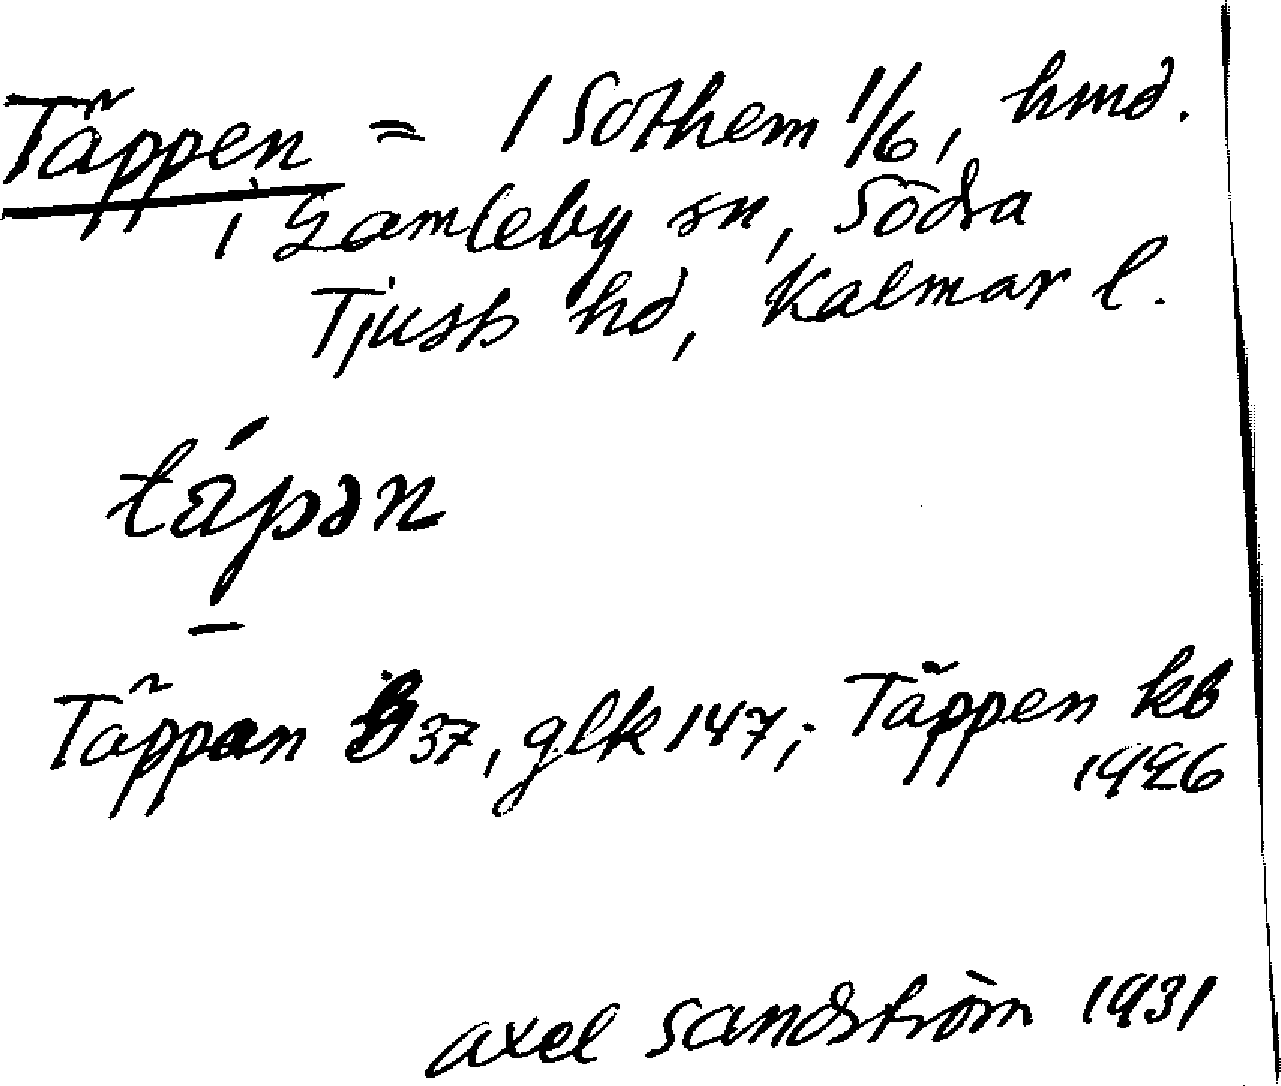 Täppen = 1 Sothem 1/6, hmd.
i Gamleby sn, Södra
Tjusts hd, Kalmar l.
tápən
Täppan B37, glk 147; Täppen kb
1926
Axel Sandström 1931